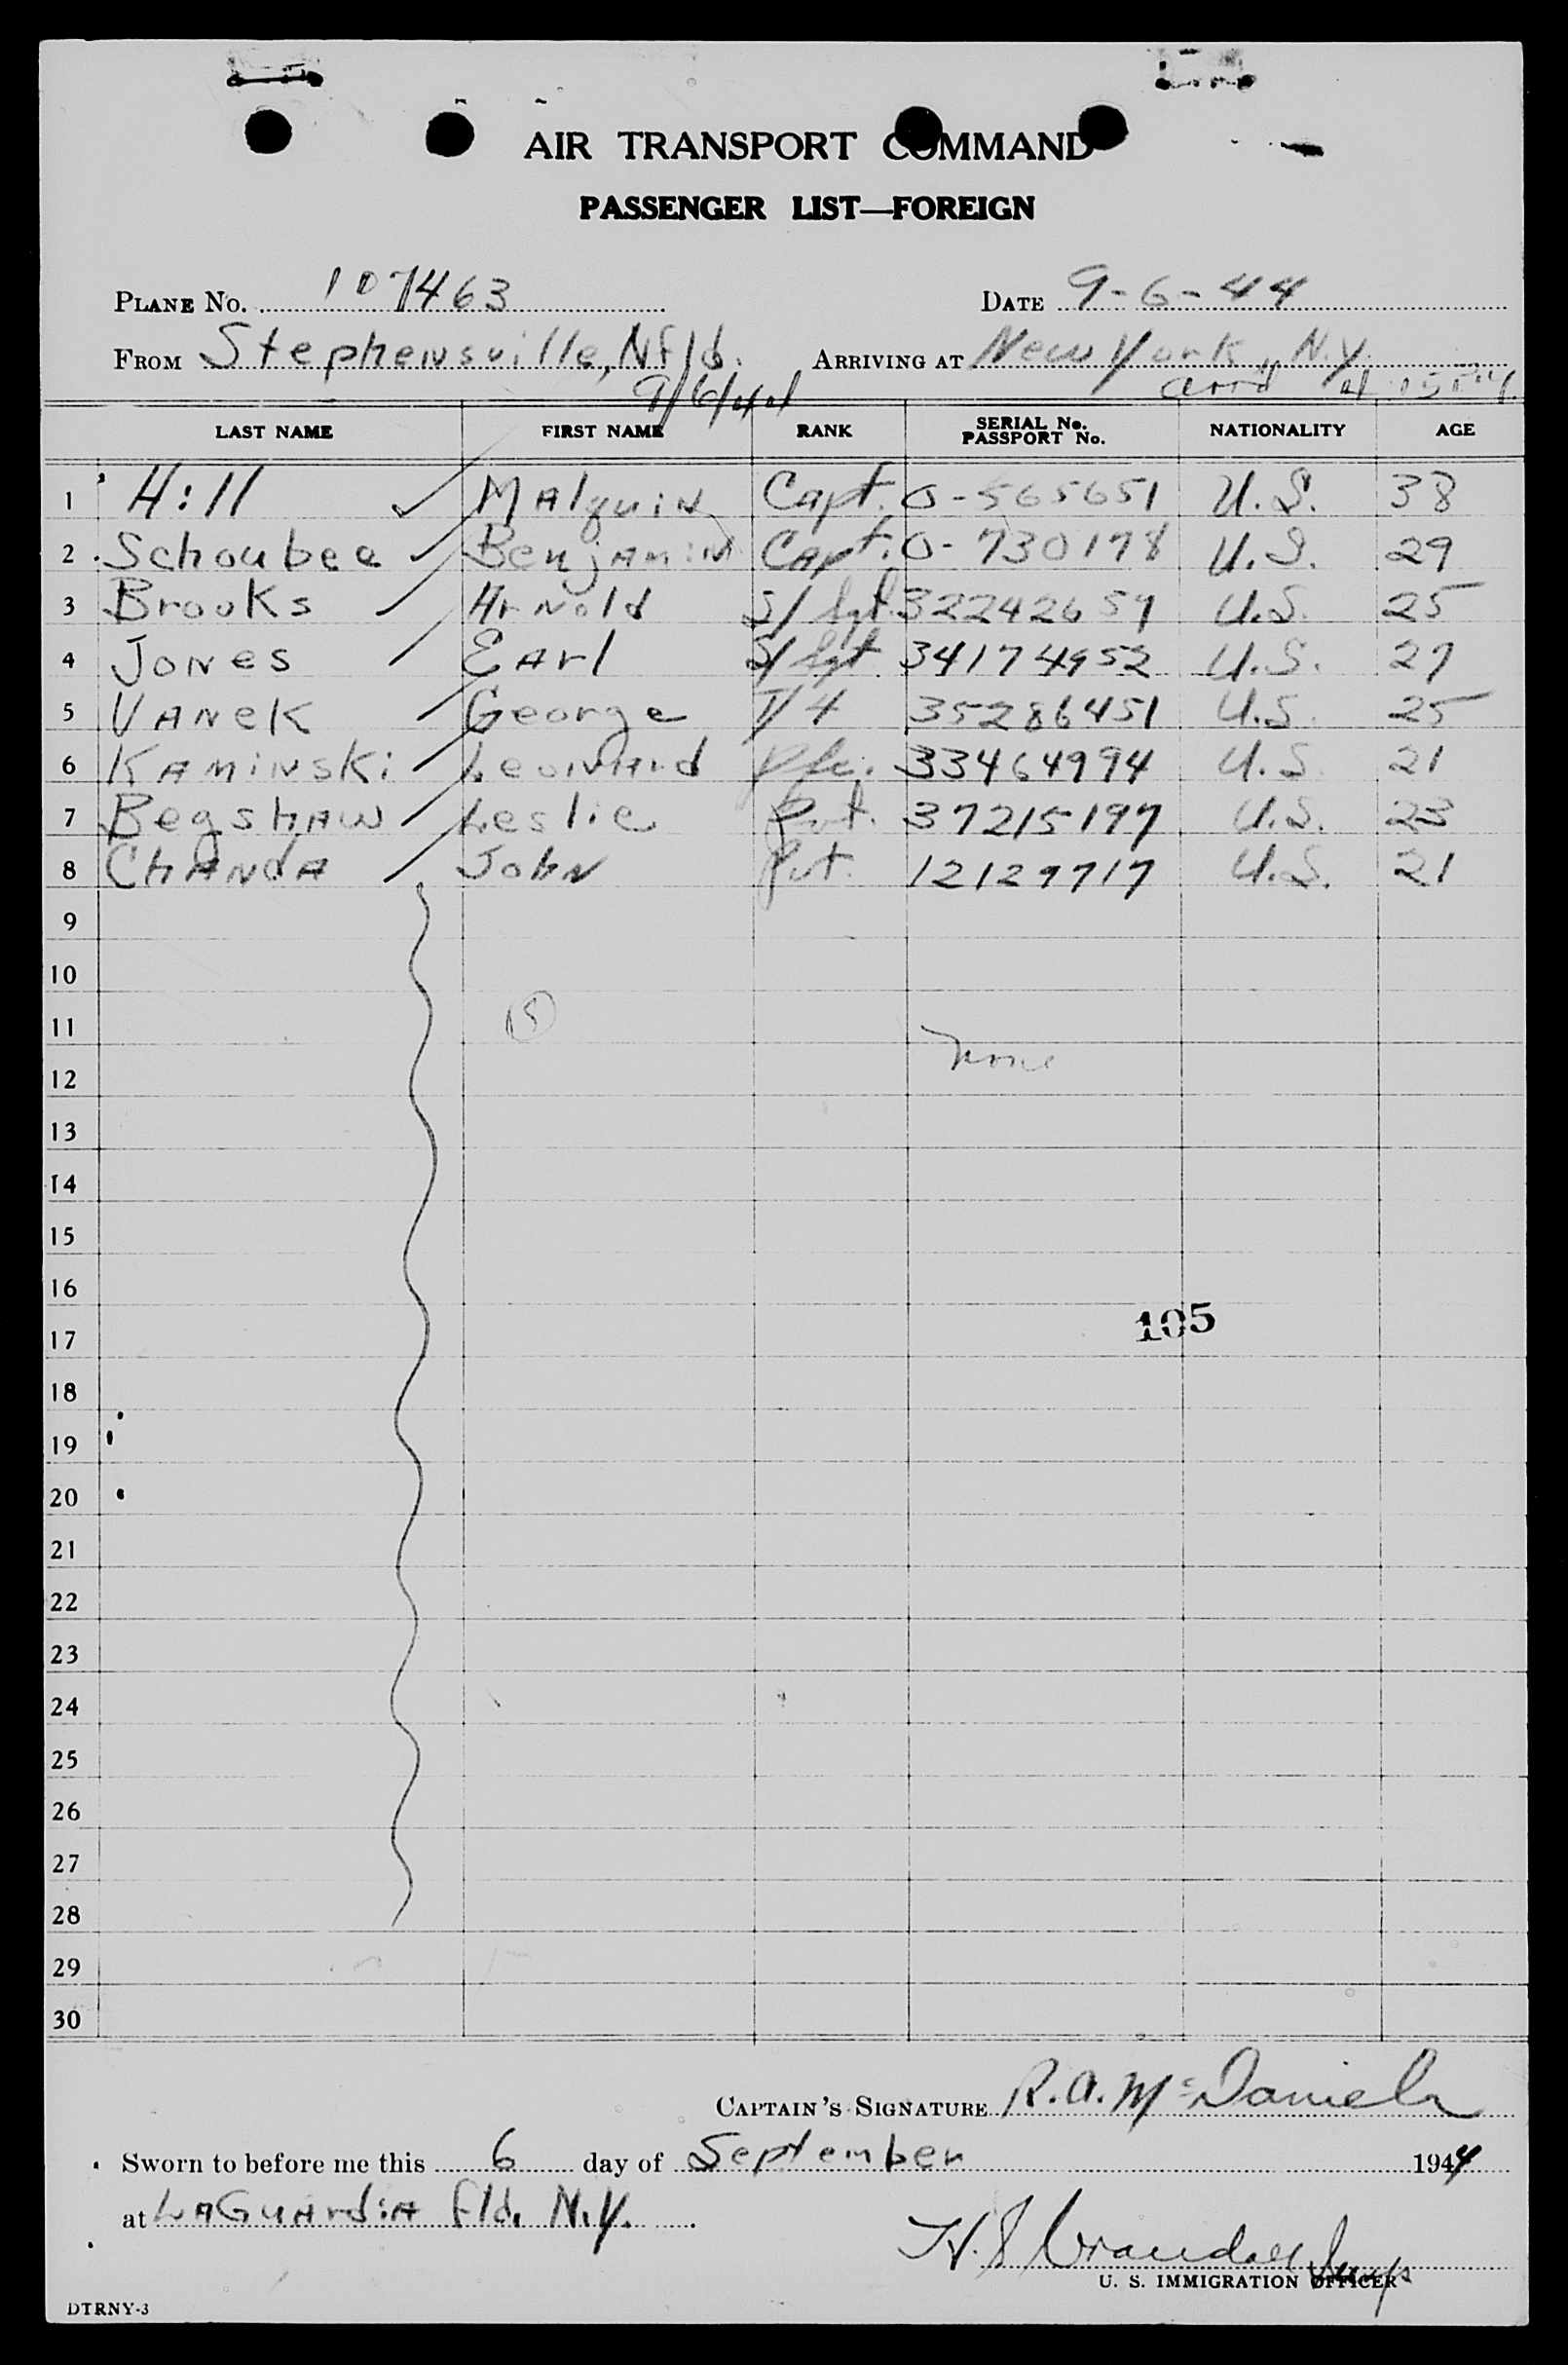 AIR TRANSPORT COMMAND
PASSENGER LIST—FOREIGN
PLANE No. 107463 DATE 9-6-44
FROM Stephensville, Nfld. ARRIVING AT New York, N.Y.
9/6/44 arr'd at
LAST NAME FIRST NAME RANK SERIAL No. PASSPORT No. NATIONALITY AGE
1 Hill Malquin Capt. O-565651 U.S. 38
2 Schoubee Benjamin Capt. O-730178 U.S. 29
3 Brooks Arnold S/Sgt. 32242659 U.S. 25
4 Jones Earl S/Sgt 34174952 U.S. 27
5 Vanek George T/4 35286451 U.S. 25
6 Kaminski Leonard Pfc. 33464994 U.S. 21
7 Begshaw Leslie Pvt. 37215197 U.S. 23
8 Chanda John Pvt. 12129717 U.S. 21
9
10
11
12 none
13
14
15
16
17 105
18
19
20
21
22
23
24
25
26
27
28
29
30
CAPTAIN'S SIGNATURE R.A. McDaniels
Sworn to before me this 6 day of September 1944
at LaGuardia Fld. N.Y.
H. J. Crandall
U. S. IMMIGRATION OFFICER
DTRNY-3